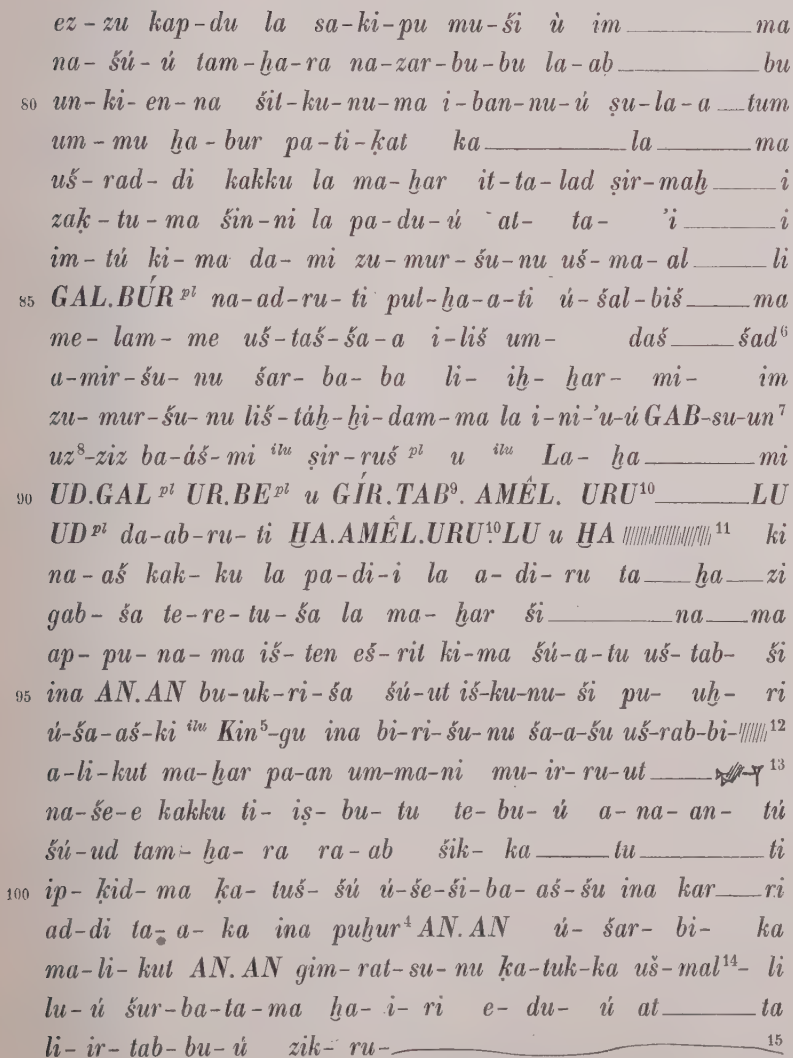 ez-zu kap-du la sa-ki-pu mu-ši ù im ma
na-šú-ú tam-ḫa-ra na-zar-bu-bu la-ab bu
80 un-ki-en-na šit-ku-nu-ma i-ban-nu-ú ṣu-la-a tum
um-mu ḫa-bur pa-ti-ḳat ka la ma
uš-rad-di kakku la ma-ḫar it-ta-lad ṣir-maḫ i
zaḳ-tu-ma šin-ni la pa-du-ú at-ta-'i i
im-tú ki-ma da-mi zu-mur-šu-nu uš-ma-al li
85 GAL.BÚR pl na-ad-ru-ti pul-ḫa-a-ti ú-šal-biš ma
me-lam-me uš-taš-ša-a i-liš um-daš šad⁶
a-mir-šu-nu šar-ba-ba li-iḫ-ḫar-mi-im
zu-mur-šu-nu liš-táḫ-ḫi-dam-ma la i-ni-'u-ú GAB-su-un⁷
uz⁸-ziz ba-áš-mi ilu ṣir-ruš pl u ilu La-ḫa mi
90 UD.GAL pl UR.BE pl u GÍR.TAB⁹. AMÊL. URU¹⁰ LU
UD pl da-ab-ru-ti ḪA.AMÊL.URU¹⁰.LU u ḪA ¹¹ ki
na-aš kak-ku la pa-di-i la a-di-ru ta ḫa zi
gab-ša te-re-tu-ša la ma-ḫar ši na ma
ap-pu-na-ma iš-ten eš-rit ki-ma šú-a-tu uš-tab-ši
95 ina AN.AN bu-uk-ri-ša šú-ut iš-ku-nu-ši pu-uḫ-ri
ú-ša-aš-ki ilu Kin⁵-gu ina bi-ri-šu-nu ša-a-šu uš-rab-bi-¹²
a-li-kut ma-ḫar pa-an um-ma-ni mu-ir-ru-ut ¹³
na-še-e kakku ti-iṣ-bu-tu te-bu-ú a-na-an-tú
šú-ud tam-ḫa-ra ra-ab šik-ka tu ti
100 ip-ḳid-ma ḳa-tuš-šú ú-še-ši-ba-aš-šu ina kar ri
ad-di ta-a-ka ina puḫur⁴ AN.AN ú-šar-bi-ka
ma-li-kut AN.AN gim-rat-su-nu ḳa-tuk-ka uš-mal¹⁴-li
lu-ú šur-ba-ta-ma ḫa-i-ri e-du-ú at ta
li-ir-tab-bu-ú zik-ru- ¹⁵